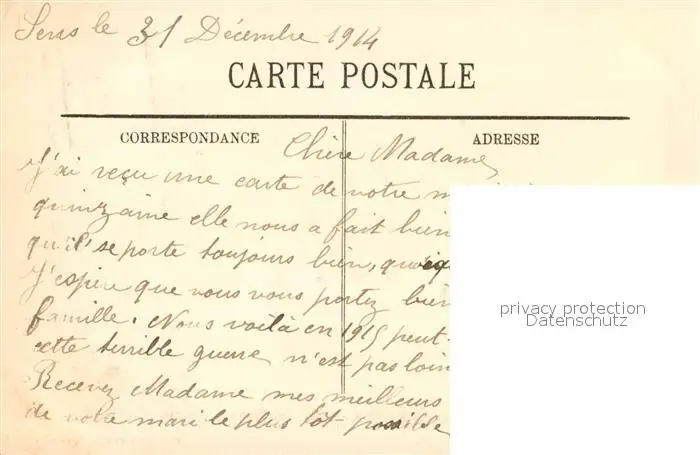 Sens le 31 Décembre 1914
CARTE POSTALE
CORRESPONDANCE
ADRESSE
Chère Madame
J'ai reçu une carte de votre
quinzaine elle nous a fait bien
qu'il se porte toujours bien,
J'espère que vous vous portez bien
famille. Nous voilà en 1915 peut-
cette terrible guerre n'est pas loin
Recevez Madame mes meilleurs
de votre mari le plus tôt possible
privacy protection
Datenschutz